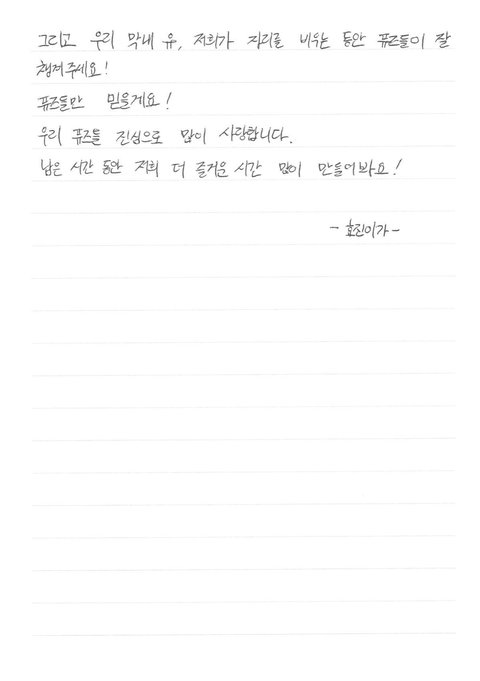 그리고 우리 막내 유, 저희가 자리를 비우는 동안 퓨즈들이 잘
챙겨주세요!
퓨즈들만 믿을게요!
우리 퓨즈들 진심으로 많이 사랑합니다.
남은 시간 동안 저희 더 즐거운 시간 많이 만들어봐요!
- 효진이가 -